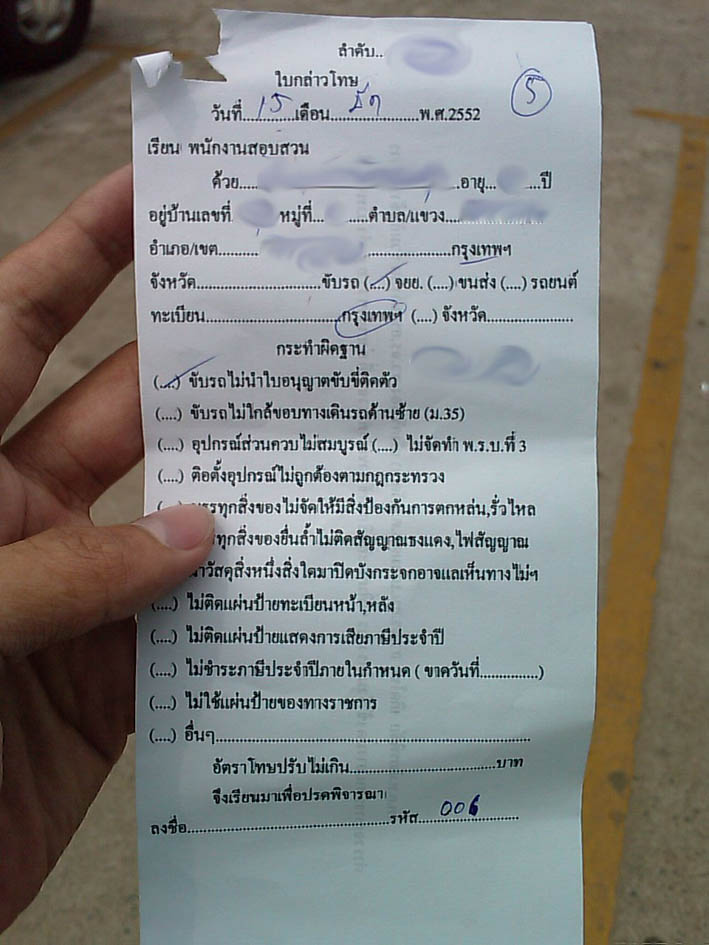 ลำดับ..
ใบกล่าวโทษ
5
วันที่....15....เดือน..................พ.ศ.2552
เรียน พนักงานสอบสวน
ด้วย.... .อายุ... ...ปี
อยู่บ้านเลขที่. หมู่ที่... .....ตำบล/แขวง....
อำเภอ/เขต......... ......................กรุงเทพฯ
จังหวัด..............................ขับรถ (....) จยย. (....) ขนส่ง (....) รถยนต์
ทะเบียน.................................กรุงเทพฯ (....) จังหวัด.....................
กระทำผิดฐาน
(....) ขับรถไม่นำใบอนุญาตขับขี่ติดตัว
(....) ขับรถไม่ใกล้ขอบทางเดินรถด้านซ้าย (ม.35)
(....) อุปกรณ์ส่วนควบไม่สมบูรณ์ (....) ไม่จัดทำ พ.ร.บ.ที่ 3
(....) ติดตั้งอุปกรณ์ไม่ถูกต้องตามกฎกระทรวง
ทุกสิ่งของไม่จัดให้มีสิ่งป้องกันการตกหล่น,รั่วไหล
ทุกสิ่งของยื่นล้ำไม่ติดสัญญาณธงแดง,ไฟสัญญาณ
วัสดุสิ่งหนึ่งสิ่งใดมาปิดบังกระจกอาจแลเห็นทางไม่ฯ
(....) ไม่ติดแผ่นป้ายทะเบียนหน้า,หลัง
(....) ไม่ติดแผ่นป้ายแสดงการเสียภาษีประจำปี
(....) ไม่ชำระภาษีประจำปีภายในกำหนด ( ขาดวันที่...............)
(....) ไม่ใช้แผ่นป้ายของทางราชการ
(....) อื่นๆ................................................................................
อัตราโทษปรับไม่เกิน.....................................บาท
จึงเรียนมาเพื่อปรดพิจารณา
ลงชื่อ...................................................รหัส....006....